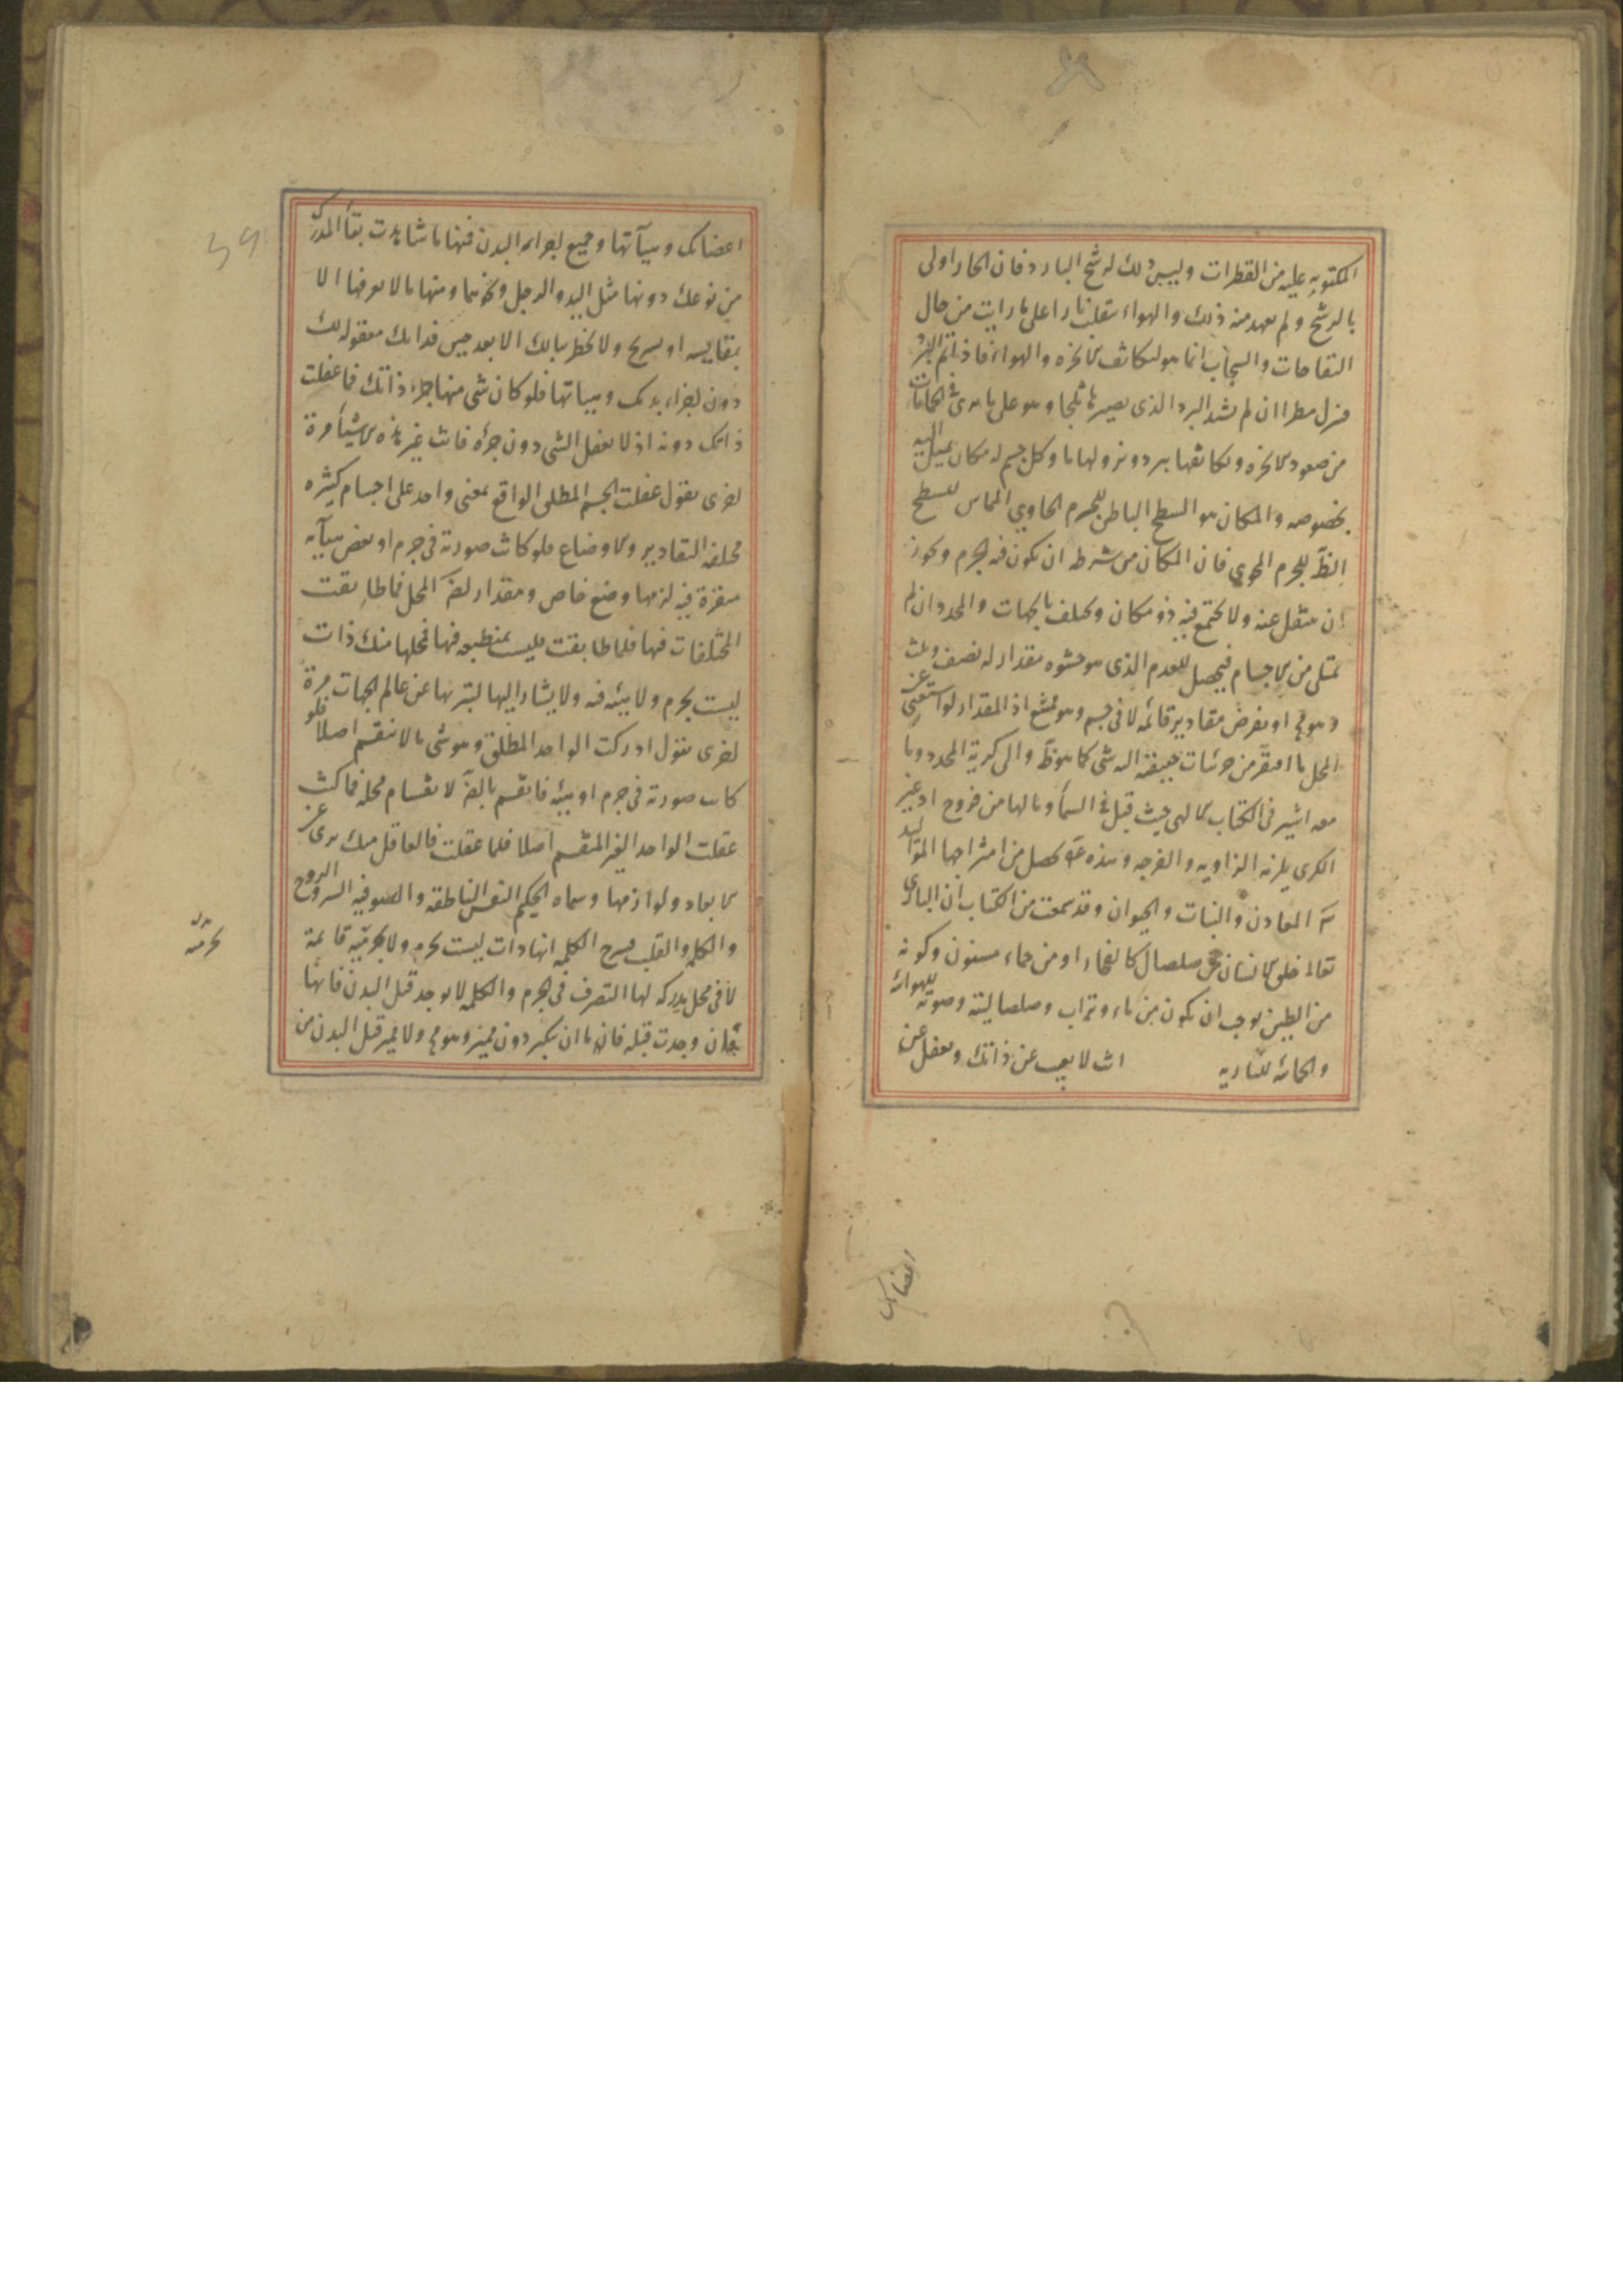 المكتوبه عليه من القطرات وليس ذلك لرشح البارد فان الحار اولى
بالرشح ولم يعهد منه ذلك والهواء ينقلب نارا على ما رايت من حال
النفاخات والسحاب انما هو لتكاثف الابخرة والهواء فاذا تم البرد
فنزل مطرا ان لم يشتد البرد الذى يصيره ثلجا وهو على ما يرى فى الحمامات
من صعود الابخرة وتكاثفها ببرد ونزولها ما وكل جسم له مكان يميل اليه
بخصوصه والمكان هو السطح الباطن للجرم الحاوي المماس للسطح
الظ للجرم المحوي فان المكان من شرطه ان يكون فيه الجرم ويجوز
ان ينتقل عنه ولا يجتمع فيه ذو مكان ويختلف بالجهات والمحدد ان لم
تمتلى من الاجسام فيحصل للعدم الذى هو حشوه مقدار له نصف وثلث
وهو مح او يفرض مقادير قائمة لا فى جسم وهو ممتنع اذ المقدار لو استغنى عن
المحل ما افتقر من جزئيات حقيقته اليه شى كما هو ظ والى كرية المحدد وما
معه اشير فى الكتاب الالهى حيث قيل فى السماء وما لها من فروج اذ غير
الكرى يلزمه الزاويه والفرجه وهذه يحصل من امتزاجها المواليد
المعادن والنبات والحيوان وقد سمعت من الكتاب ان البارى
تعالى خلق الانسان من صلصال كالفخار او من حماء مسنون وكونه
من الطين يوجب ان يكون من ماء وتراب وصلصاليته وصوته للهوائية
والحمائه للناريه انت لا تغيب عن ذاتك وتغفل عن
اعضائك
اعضائك وهيآتها وجميع اجزاء البدن فمنها ما شاهدت بقاء المدرك
من نوعك دونها مثل اليد والرجل ونحوهما ومنها ما لا تعرفها الا
بمقايسه او تشريح ولا يخطر ببالك الا بعد حين فذاتك معقوله لك
دون اجزاء بدنك وهيئاتها فلو كان شى منها جزء ذاتك فما عقلت
ذاتك دونه اذ لا يعقل الشى دون جزئه فانت غير هذه الاشياء مرة
اخرى نقول عقلت الجسم المطلق الواقع بمعنى واحد على اجسام كثيره
مختلفه التقادير والاوضاع فلو كانت صورته فى جرم او بعض هيآته
متقررة فيه لزمها وضع خاص ومقدار لضر المحل فما طابقت
المختلفات فيها فلما طابقت فليست بمنطبعه فيها فمحلها منك ذات
ليست بجرم ولا هيئه فيه ولا يشار اليها لتبرئها عن عالم الجهات مرة
اخرى نقول ادركت الواحد المطلق وهو شى ما لا ينقسم اصلا فلو
كانت صورته فى جرم او هيئه فانقسم بالضر لانقسام محله فما كنت
عقلت الواحد الغير المنقسم اصلا فلما عقلت فالعاقل منك برى عن
الابعاد ولوازمها وسماه الحكيم النفس الناطقه والصوفيه السر والروح
والكلمه والقلب فشرح الكلمه انها ذات ليست بجرم ولا بجرميه قائمة
لا فى محل مدركه لها التصرف فى الجرم والكلمه لا يوجد قبل البدن فانها
فان وجدت قبله فاما ان تكثر دون مميز وهو مح ولا مميز قبل البدن من